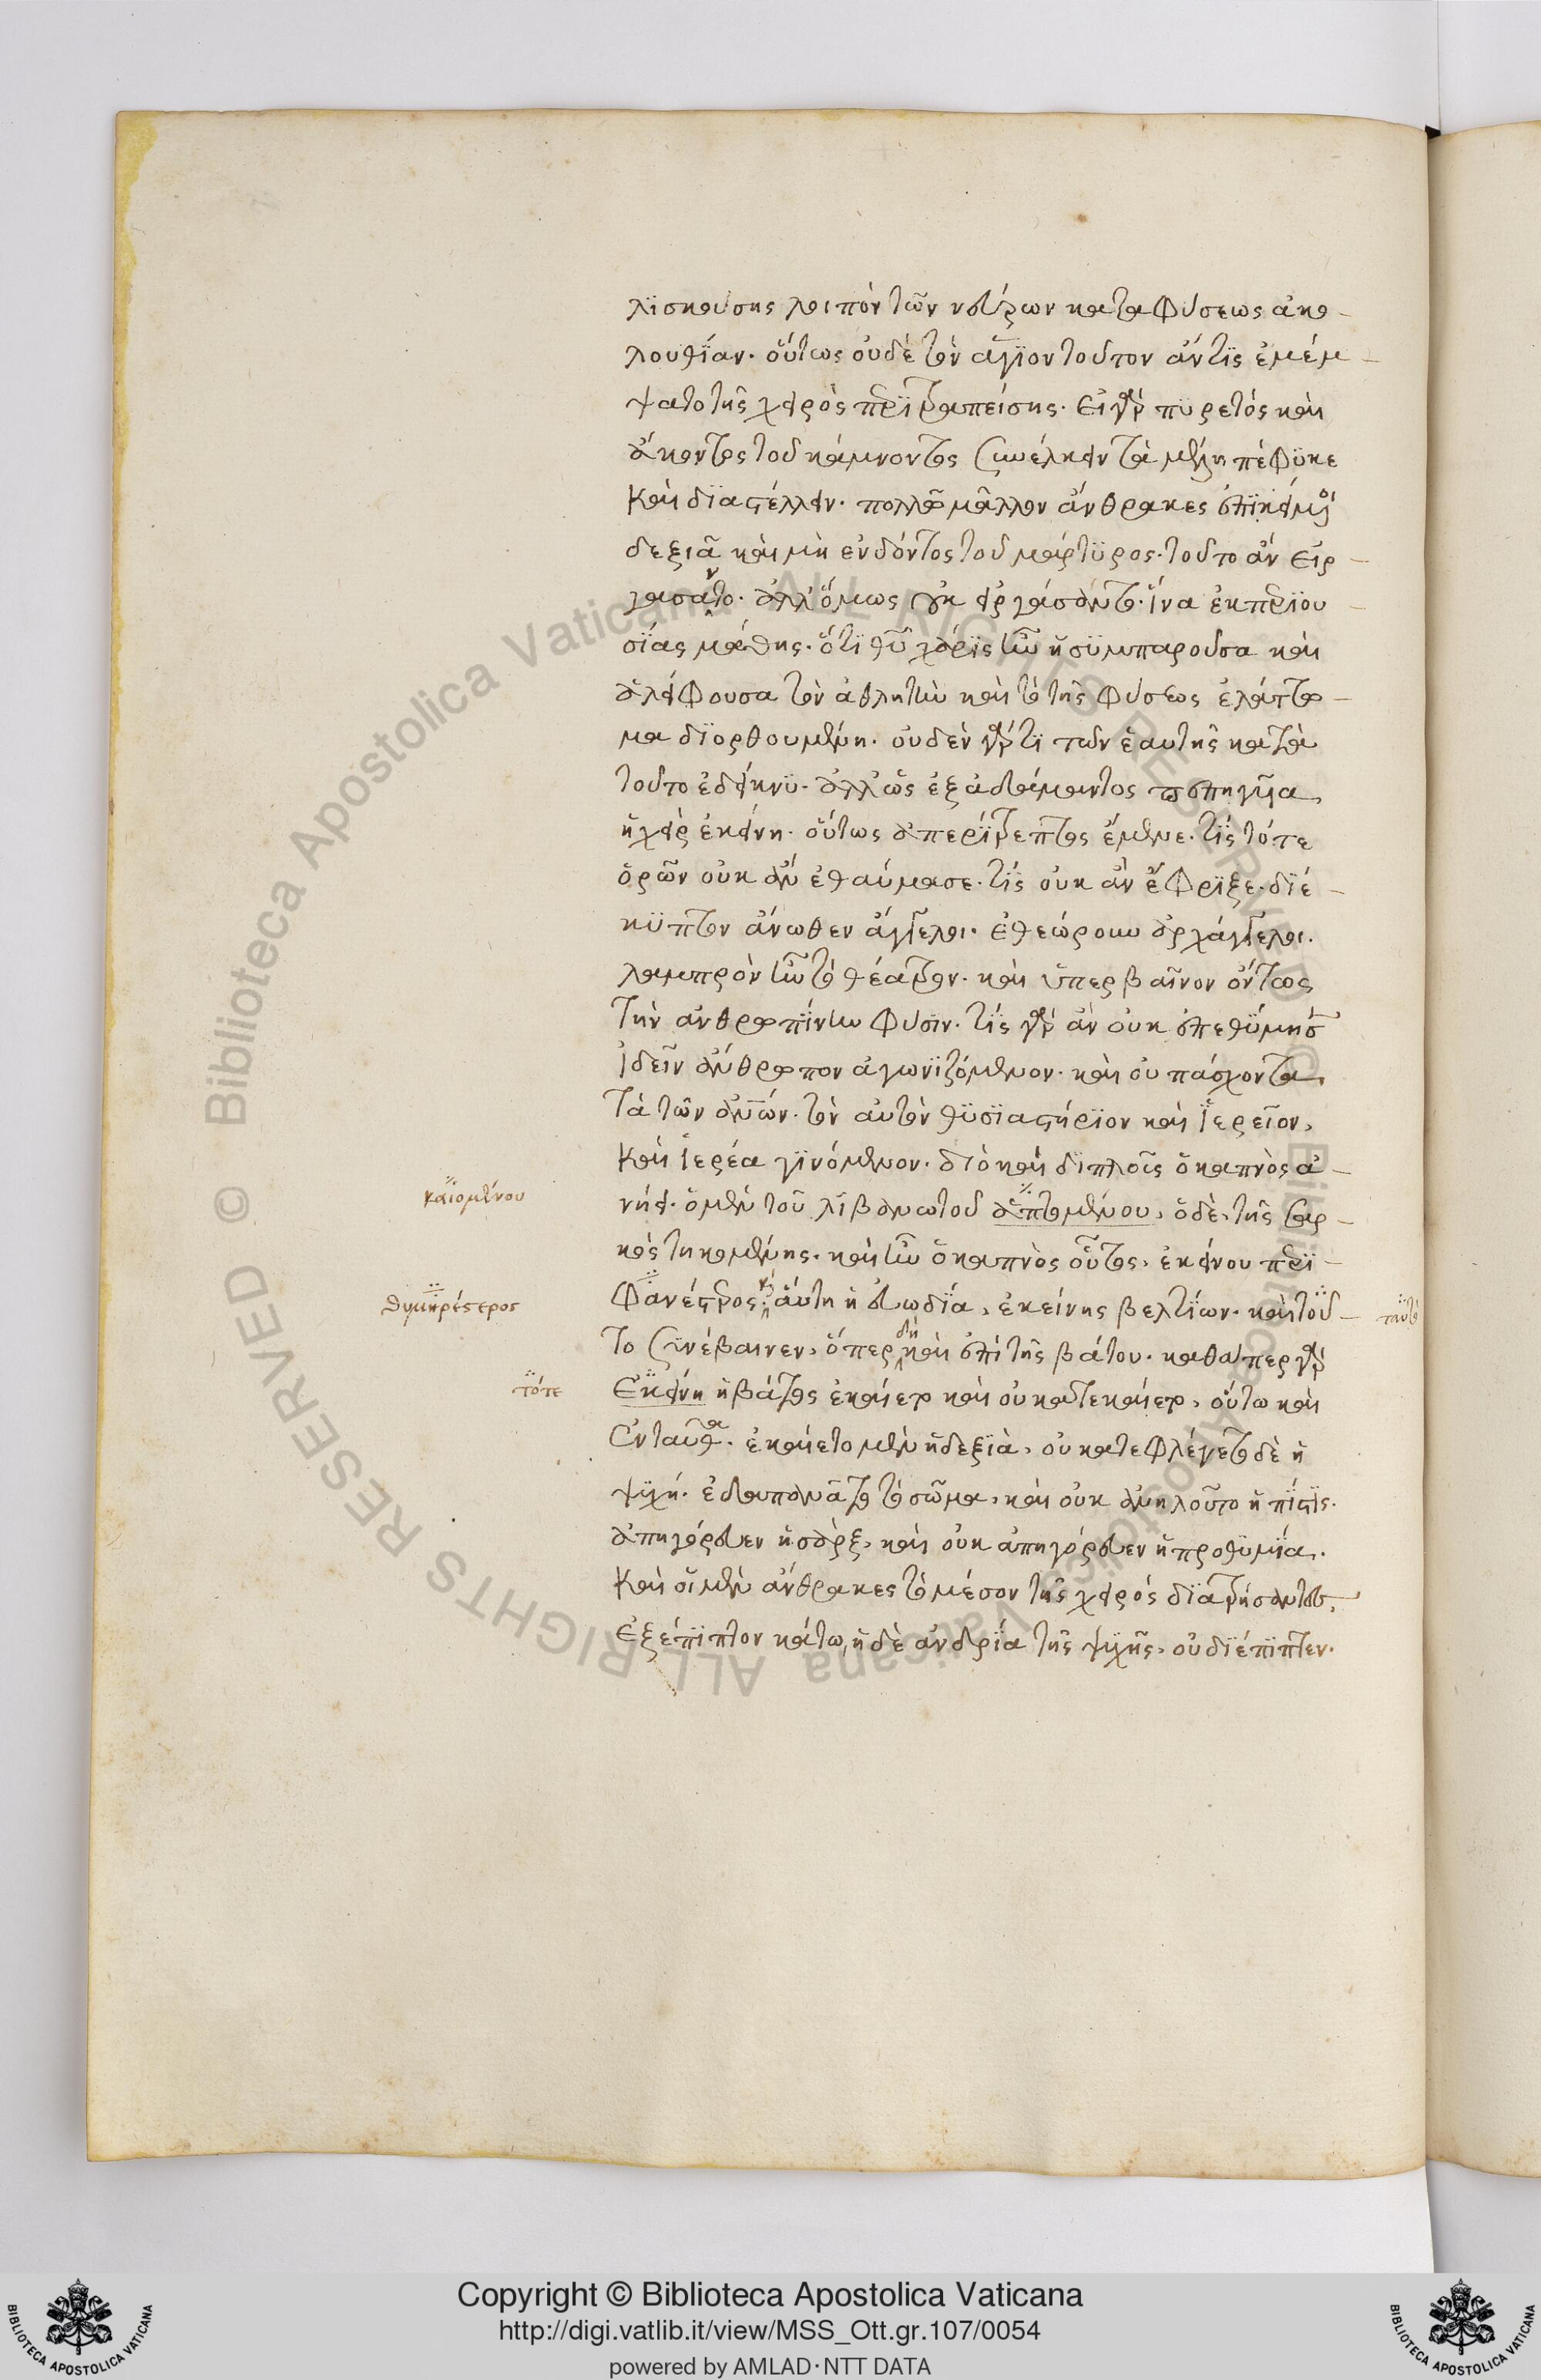 λϊσκούσης λοιπὸν τῶν νεύρων κατὰ φύσεως ἀκο
λουθΐαν. οὕτως οὐδὲ τὸν ἅγϊον τοῦτον ἄν τϊς ἐμέμ
ψατο τῆς χειρὸς περϊτραπείσης. εἰ γὰρ πϋρετὸς καὶ
ἄκοντος τοῦ κάμνοντος συνέλκειν τὰ μέλη πέφϋκε
καὶ δϊαστέλλειν. πολλῶ μᾶλλον ἄνθρακες ἐπϊκείμενοι
δεξιᾶ καὶ μὴ ἐνδόντος τοῦ μάρτϋρος. τοῦτο ἂν εἰρ
γάσαντο. ἀλλ' ὅμως οὐκ εἰργάσαντο. ἵνα ἐκ περϊου
σΐας μάθης. ὅτϊ θυ χάρϊς ἦν ἡ σϋμπαροῦσα καὶ
ἀλείφουσα τὸν ἀθλητὴν καὶ τὸ τῆς φύσεως ἐλάττω
μα δϊορθουμένη. οὐδὲν γάρ τϊ τῶν ἑαυτῆς κατὰ
τοῦτο ἐδείκνϋ. ἀλλ' ὡς ἐξ ἀδάμαντος πεπηγυῖα
ἡ χεὶρ ἐκείνη. οὕτως ἀπερΐτρεπτος ἔμενε. τΐς τότε
ὁρῶν οὐκ ἂν ἐθαύμασε. τΐς οὐκ ἂν ἔφρϊξε. δϊέ
κϋπτον ἄνωθεν ἄγγελοι. ἐθεώρουν ἀρχάγγελοι.
λαμπρὸν ἦν τὸ θέατρον. καὶ ὑπερβαῖνον ὄντως
τὴν ἀνθρωπΐνην φύσϊν. τΐς γὰρ ἂν οὐκ ἐπεθϋμησ
ἰδεῖν ἄνθρωπον ἀγωνϊζόμενον. καὶ οὐ πάσχοντα
τὰ τῶν ἀνων. τὸν αὐτὸν θϋσϊαστήρϊον καὶ ἱερεῖον,
καὶ ἱερέα γϊνόμενον. διὸ καὶ δϊπλοῦς ὁ καπνὸς ἀ
καϊομένου
νήει. ὁ μὲν τοῦ λϊβανωτοῦ ἁπτομένου, ὁ δὲ, τῆς σαρ
κὸς τηκομένης. καὶ ἦν ὁ καπνὸς οὗτος, ἐκείνου περϊ
θυμηρέστερος
φανέστερος. κ αὕτη ἡ εὐωδΐα, ἐκείνης βελτΐων. καὶ τοῦ
ταυτὸ
το συνέβαινεν, ὅπερ δὴ καὶ ἐπὶ τῆς βάτου. καθάπερ γὰρ
τότε
ἐκείνη ἡ βάτος ἐκαίετο καὶ οὐ κατεκαίετο, οὕτω καὶ
ἐνταῦθα. ἐκαίετο μὲν ἡ δεξιὰ, οὐ κατεφλέγετο δὲ ἡ
ψϋχή. ἐδαπανᾶτο τὸ σῶμα, καὶ οὐκ ἀνηλοῦτο ἡ πΐστϊς.
ἀπηγόρευεν ἡ σὰρξ, καὶ οὐκ ἀπηγόρευεν ἡ προθϋμΐα.
καὶ οἱ μὲν ἄνθρακες τὸ μέσον τῆς χειρὸς δϊατρήσαντες,
ἐξέπϊπτον κάτω, ἡ δὲ ἀνδρΐα τῆς ψϋχῆς, οὐ δϊέπϊπτεν.
Copyright © Biblioteca Apostolica Vaticana
http://digi.vatlib.it/view/MSS_Ott.gr.107/0054
powered by AMLAD·NTT DATA
BIBLIOTECA APOSTOLICA VATICANA
BIBLIOTECA APOSTOLICA VATICANA
© Biblioteca Apostolica Vaticana ALL RIGHTS RESERVED
© Biblioteca Apostolica Vaticana ALL RIGHTS RESERVED